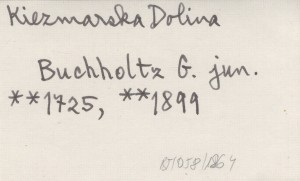 Kiezmarska Dolina
Buchholtz G. jun.
**1725, **1899